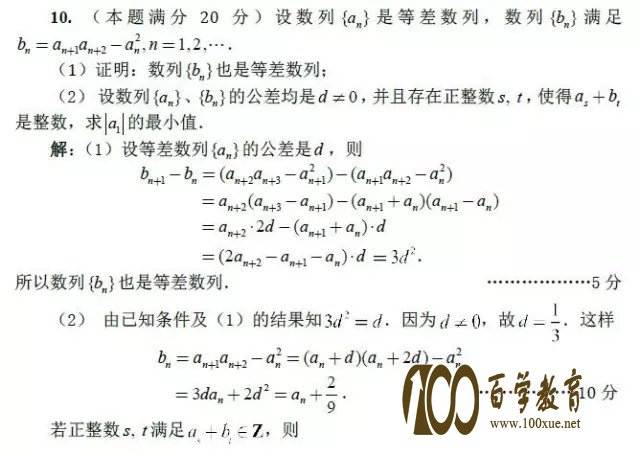 10. (本题满分 20 分) 设数列 {aₙ} 是等差数列, 数列 {bₙ} 满足
bₙ = aₙ₊₁aₙ₊₂ − aₙ², n = 1,2,⋯.
(1) 证明: 数列{bₙ}也是等差数列;
(2) 设数列{aₙ}、{bₙ}的公差均是d ≠ 0, 并且存在正整数s, t, 使得aₛ + bₜ
是整数, 求|a₁|的最小值.
解: (1) 设等差数列{aₙ}的公差是d, 则
bₙ₊₁ − bₙ = (aₙ₊₂aₙ₊₃ − aₙ₊₁²) − (aₙ₊₁aₙ₊₂ − aₙ²)
= aₙ₊₂(aₙ₊₃ − aₙ₊₁) − (aₙ₊₁ + aₙ)(aₙ₊₁ − aₙ)
= aₙ₊₂·2d − (aₙ₊₁ + aₙ)·d
= (2aₙ₊₂ − aₙ₊₁ − aₙ)·d = 3d².
所以数列{bₙ}也是等差数列. ………………5 分
(2) 由已知条件及 (1) 的结果知3d² = d. 因为d ≠ 0, 故d = 1/3. 这样
bₙ = aₙ₊₁aₙ₊₂ − aₙ² = (aₙ + d)(aₙ + 2d) − aₙ²
= 3daₙ + 2d² = aₙ + 2/9. 10 分
若正整数s, t满足aₛ + bₜ ∈ Z, 则
100百学教育
www.100xue.net